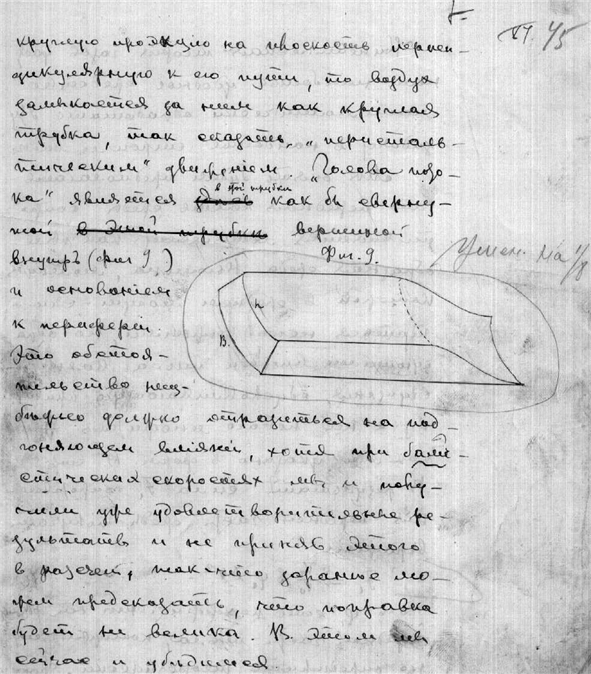 VI. 45
круглую проэкцію на плоскость перпен-
дикулярную к его пути, то воздух
замыкается за ним как круглая
трубка, так сказать, „перисталь-
тическим" движением. „Голова пото-
ка" является в той трубки как бы сверну-
той в этой трубки вершиной
внутрь (фиг 9)
Фиг. 9.
Умен. на 1/8
и основанием
к периферіи.
h
B.
Это обстоя-
тельство неиз-
бежно должно отразиться на под-
гоняющем вліяніи, хотя при балли-
стических скоростях мы и полу-
чили уже удовлетворительные ре-
зультаты и не приняв этого
в разсчет, так что заранее мо-
жем предсказать, что поправка
будет не велика. В этом мы
сейчас и убедимся.